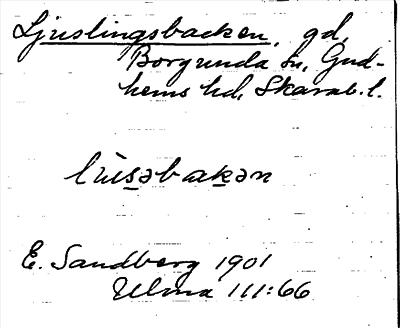 Ljuslingsbacken, gd,
Borgunda sn, Gud-
hems hd, Skarab. l.
lùsəbakən
E. Sandberg 1901
Ulma 111:66